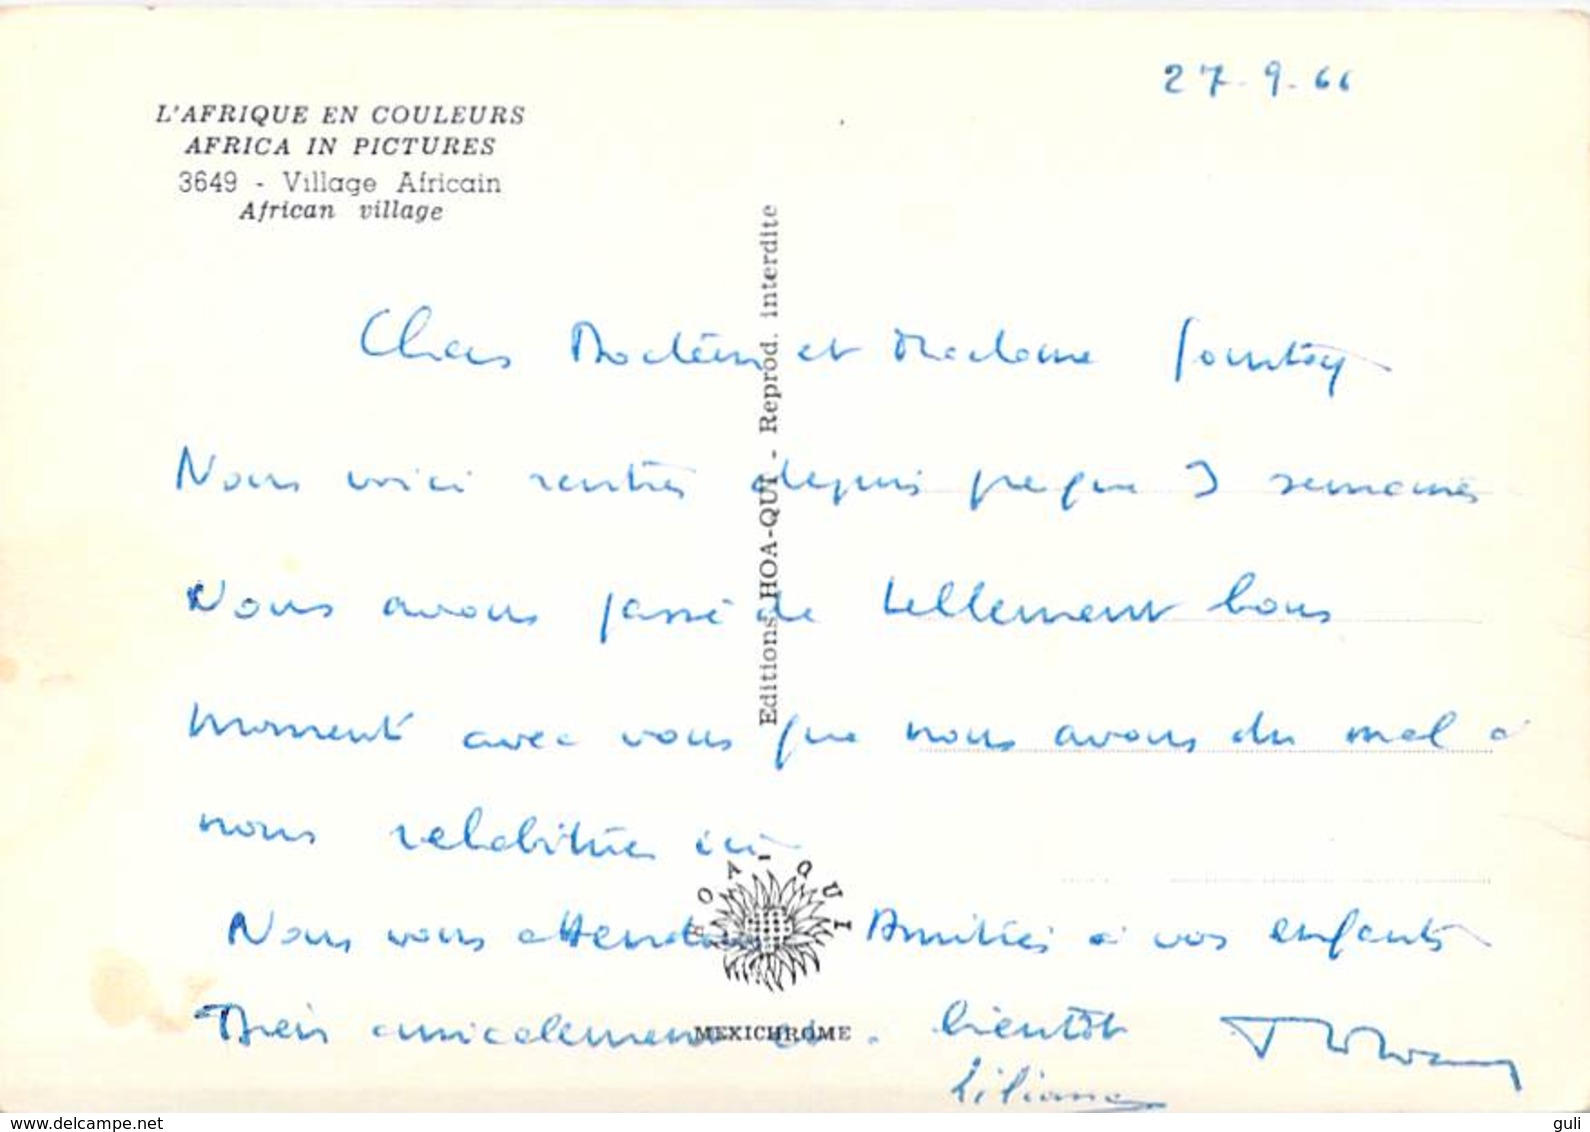 27-9-66
L'AFRIQUE EN COULEURS
AFRICA IN PICTURES
3649 - Village Africain
African village
Editions HOA-QUI - Reprod. interdite
Chers Docteur et Madame
Nous voici rentrés depuis presque 3 semaines
Nous avons passé de tellement bons
moments avec vous que nous avons du mal à
nous rehabituer ici
Nous vous attendons Amitiés à vos enfants
HOA-QUI
Très amicalement à bientôt
MEXICHROME
Liliane
www.delcampe.net
guli